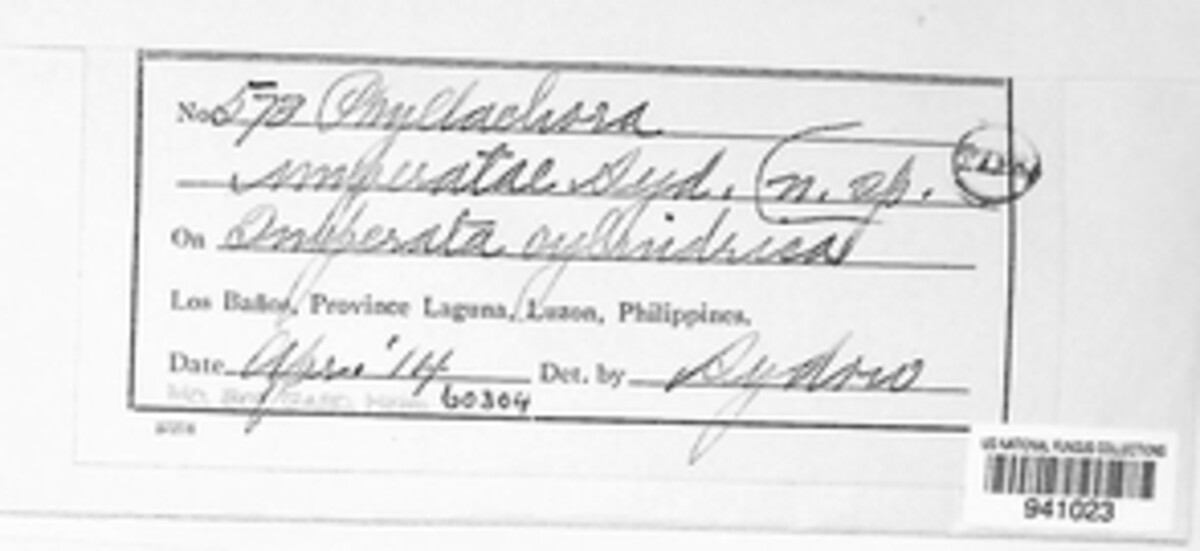 No. 573 Phyllachora
imperatae Syd. (n. sp.
On Imperata cylindrica
Los Baños, Province Laguna, Luzon, Philippines.
Date Apr. '14 Det. by Sydow
60304
US NATIONAL FUNGUS COLLECTIONS
941023